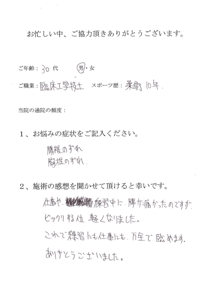 お忙しい中、ご協力頂きありがとうございます。
ご年齢：30代 男・女
ご職業：臨床工学技士 スポーツ歴：柔術10年
当院の通院の頻度：
1、お悩みの症状をご記入ください。
腰椎のずれ
胸椎のずれ
2、施術の感想を聞かせて頂けると幸いです。
仕事や 練習中に 腰が痛かったのですが
ビックリする位 軽くなりました。
これで練習にも仕事にも 万全で臨めます
ありがとうございました。